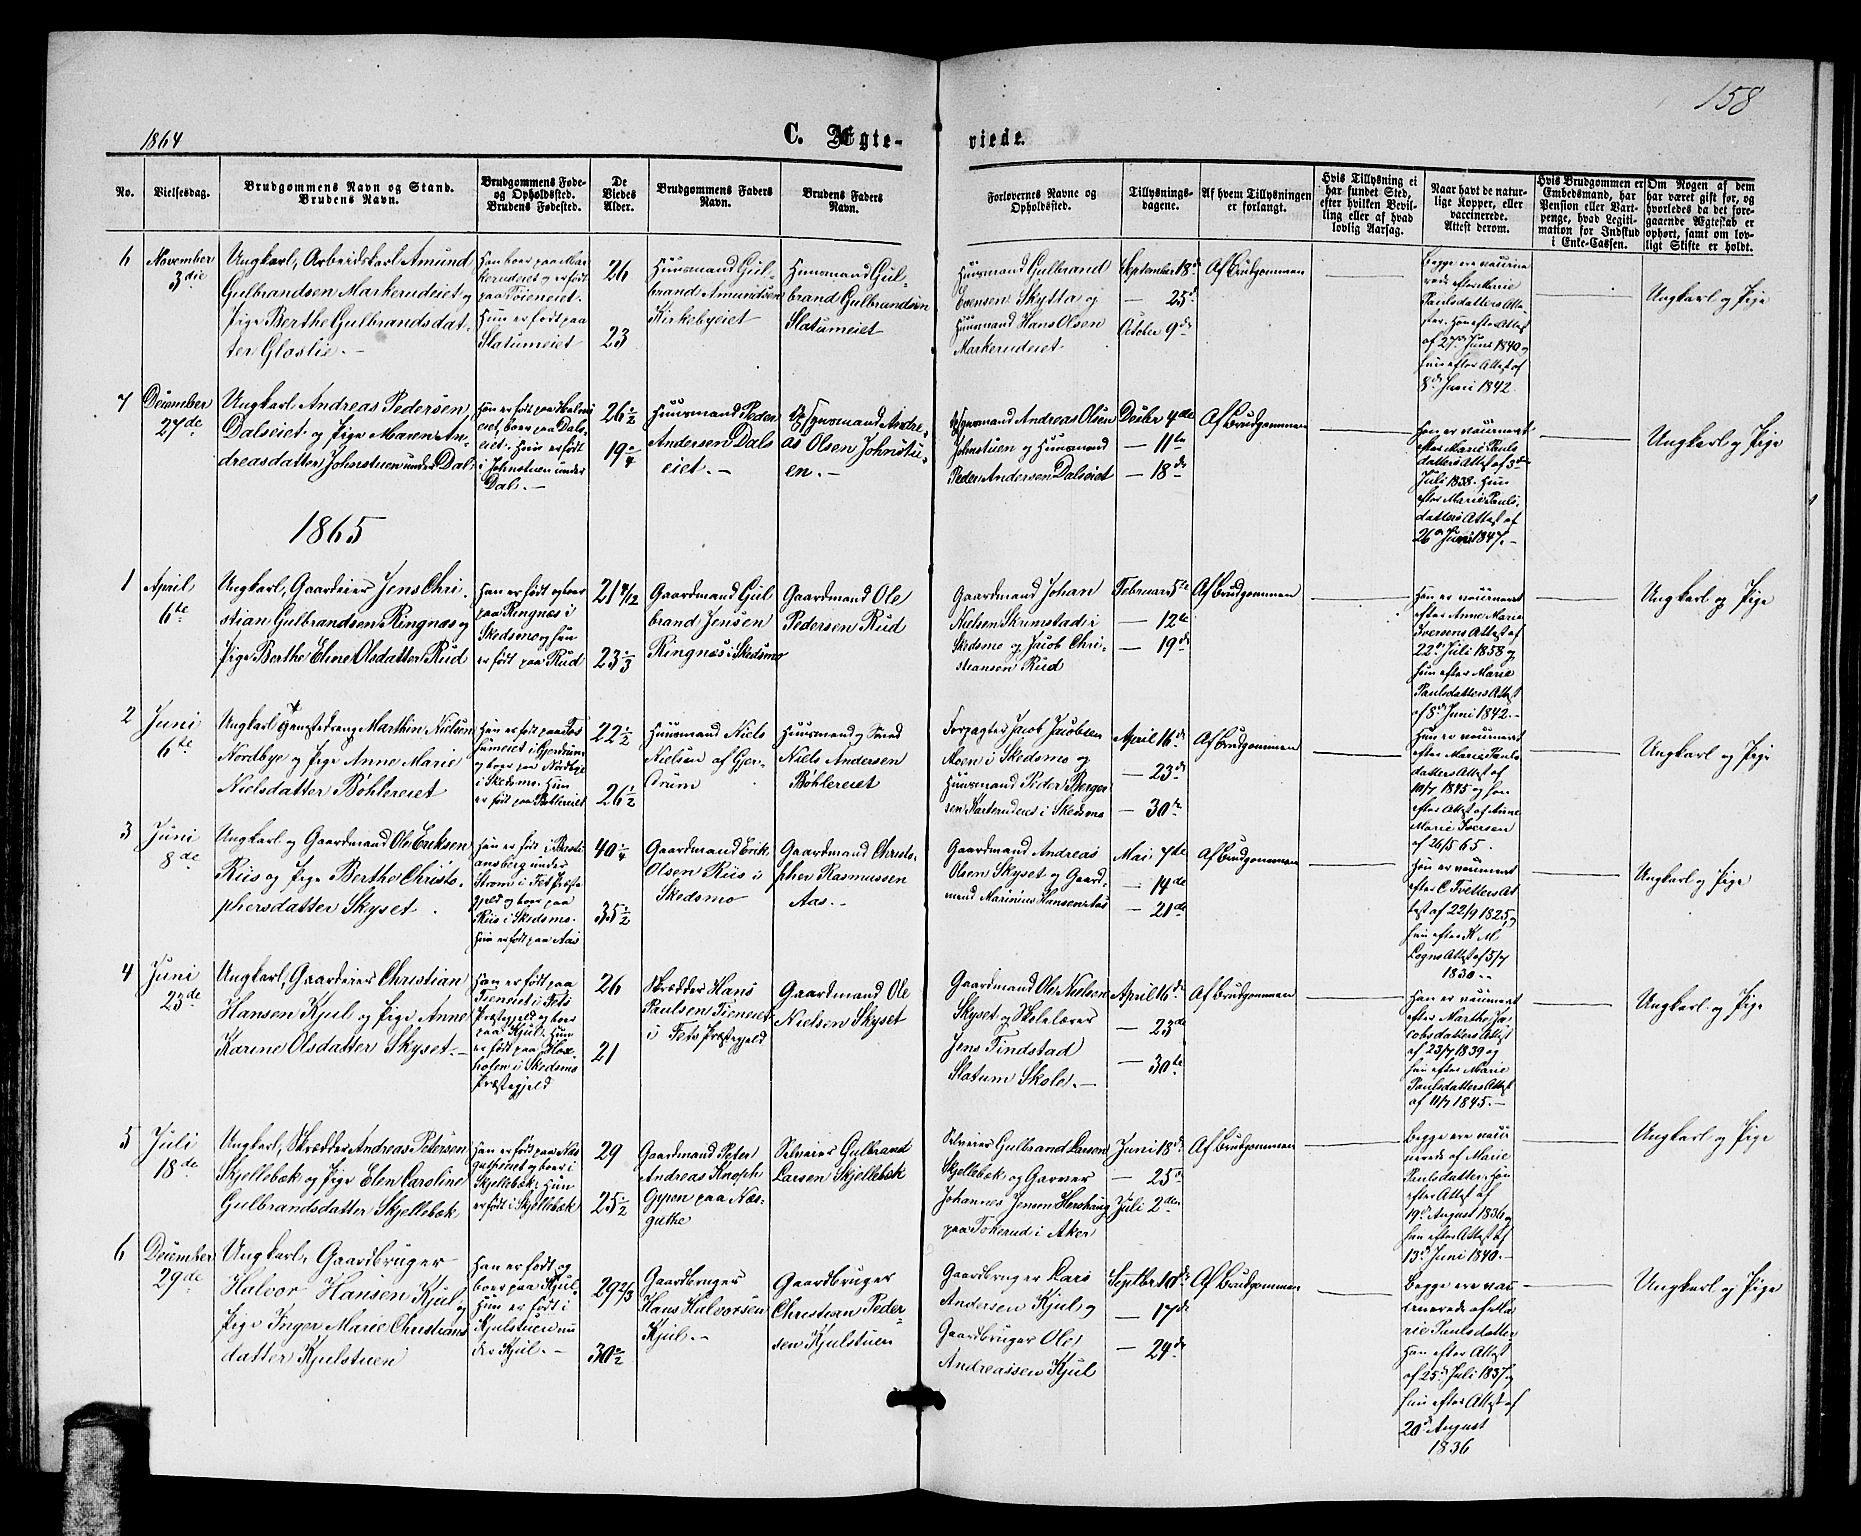 158
1864
C. Ægte-
viede.
No.
Vielsesdag.
Brudgommens Navn og Stand.
Brudens Navn.
Brudgommens Føde-
og Opholdsted.
Brudens Fødested.
De
Viedes
Alder.
Brudgommens Faders
Navn.
Brudens Faders
Navn.
Forlovernes Navne og
Opholdsted.
Tillysnings-
dagene.
Af hvem Tillysningen
er forlangt.
Hvis Tillysning ei
har fundet Sted,
efter hvilken Bevil-
ling eller af hvad
lovlig Aarsag.
Naar havt de natur-
lige Kopper, eller
vaccinerede.
Attest derom.
Hvis Brudgommen er
Embedsmand, har
Pension eller Vart-
penge, hvad Legiti-
mation for Indskud
i Enke-Cassen.
Om Nogen af dem
har været gift før, og
hvorledes da det fore-
gaaende Ægteskab er
ophørt, samt om lov-
ligt Skifte er holdt.
6
November
3die
Ungkarl, Arbeidskarl Amund
Gulbrandsen Markerudeiet og
Pige Berthe Gulbrandsdat-
ter Gloslie.-
Han boer paa Mar-
kerudeiet og er født
paa Töieneiet.
Hun er født paa
Slatumeiet
26
23
Huusmand Gul-
brand Amundsen
Kirkebyeiet
Huusmand Gul-
brand Gulbrandsen
Slatumeiet
Huusmand Gulbrand
Evensen Skytta og
Huusmand Hans Olsen
Markerudeiet
September 18de
- 25de
October 9de
Af Brudgommen
Begge ere vaccine-
rede efter Marie
Paulsdatters Atte-
ster. Han efter Attest
af 27de Juni 1840 og
hun efter Attest af
8de Juni 1842.
Ungkarl og Pige
7
December
27de
Ungkarl Andreas Pedersen
Dalseiet og Pige Maren An-
dreasdatter Johnstuen under Dal
Han er født paa Holm-
eiet, boer paa Dals-
eiet. Hun er født
i Johnstuen under
Dal.-
26 1/2
19 3/4
Huusmand Peder
Andersen Dals
eiet.-
Huusmand Andre-
as Olsen Johnstu-
en.-
Huusmand Andreas Olsen
Johnstuen og Huusmand
Peder Andersen Dalseiet
Decbr 4de
- 11te
- 18de
Af Brudgommen
Han er vaccineret
efter Marie Pauls
datters Attest af 3de
Juli 1838. Hun
efter Marie Pauls-
datters Attest af
26de Juni 1847.-
Ungkarl og Pige
1865
1
April
6te
Ungkarl, Gaardeier Jens Chri-
stian Gulbrandsen Ringnæs og
Pige Berthe Eline Olsdatter Rud
Han er født og boer
paa Ringnæs i
Skedsmo og hun
er født paa Rud
21 4/12
23 1/3
Gaardmand Gul
brand Jensen
Ringnæs i Skedsmo
Gaardmand Ole
Pedersen Rud
Gaardmand Johan
Nielsen Skrimstad i
Skedsmo og Jacob Chri-
stiansen Rud
Februar 5te
- 12te
- 19de
Af Brudgommen
Han er vaccineret
efter Anne Marie
Iversens Attest af
22de Juli 1858 og
hun efter Marie
Paulsdatters Attest
af 8de Juni 1842.-
Ungkarl og Pige
2
Juni
6te
Ungkarl Tjenestedreng Marthin Nielsen
Nordbye og Pige Anne Marie
Nielsdatter Böhlereiet
i Gjerdrum
og boer paa Nordbye
i Skedsmo. Hun
er født paa Böhlereiet
22 1/2
26 1/2
Huusmand Niels
Nielsen af Gjer-
drum
Huusmand og Smed
Niels Andersen
Böhlereiet
Forpagter Jacob Jacobsen
Moen i Skedsmo og
Huusmand Peder Berger
sen Karterudens i Skedsmo
April 16de
- 23de
- 30te
Af Brudgommen
Hun er vaccineret
efter Marie Pauls
datters Attest af
10/7 1845 og han
efter Attest af Anne
Marie Iversen
af 26/5 65.
Ungkarl og Pige
3
Juni
8de
Ungkarl og Gaardmand Ole Eriksen
Riis og Pige Berthe Christo-
phersdatter Skyset.
Han er født i Basti-
ansberg under
Strøm i Fet Præste
gjeld og boer paa
Riis i Skedsmo.
Hun er født paa Aas
40 1/4
35 1/2
Gaardmand Erik
Olsen Riis i
Skedsmo
Gaardmand Christo-
pher Rasmussen
Aas.-
Gaardmand Andreas
Olsen Skyset og Gaard-
mand Marinius Hansen Aas
Mai 7de
- 14de
- 21de
Af Brudgommen
Han er vaccineret
efter C. Tvetters At
test af 22/9 1825, og
hun efter K M
Logns Attest af 5/7
1830.-
Ungkarl og Pige
4
Juni
23de
Ungkarl, Gaardeier Christian
Hansen Kjul og Pige Anne
Karine Olsdatter Skyset.-
Han er født paa
Tieneiet i Fets
Præstegjeld og boer
paa Kjul. Hun
er født paa Flox-
hofen i Skedsmo
Præstegjeld
26
21
Skrædder Hans
Paulsen Tieneiet
i Fets Præstegjeld
Gaardmand Ole
Nielsen Skyset
Gaardmand Ole Nielsen
Skyset og Skolelærer
Jens Tindstad
Slatum Skole.-
April 16de
- 23de
- 30te
Af Brudgommen
Han er vaccineret
efter Marthe Ja-
cobsdatters Attest
af 23/7 1839 og
hun efter Marie
Paulsdatters Attest
af 11/7 1845.-
Ungkarl og Pige
5
Juli
18de
Ungkarl, Skrædder Andreas Petersen
Skjellebæk og Pige Elen Caroline
Gulbrandsdatter Skjellebæk
Han er født paa Næs
og boer i
Skjellebæk. Hun
er født i Skjellebæk
29
25 1/2
Gaardmand Peter
Andreas Knoph
Gypen paa Næs-
guthe
Selveier Gulbrand
Larsen Skjellebæk
Selveier Gulbrand Larsen
Skjellebæk og Garver
Johannes Jensen Hershaug
paa Tokerud i Aker
Juni 18de
- 25de
Juli 2den
Af Brudgommen
Begge ere vacci
nerede af Marie
Paulsdatter, han
efter Attest af
19de August 1836 og
hun efter Attest af
13de Juni 1840.-
Ungkarl og Pige
6
December
29de
Ungkarl, Gaardbruger
Halvor Hansen Kjul og
Pige Inger Marie Christians
datter Kjulstuen
Han er født og
boer paa Kjul.
Hun er født i
Kjulstuen un
der Kjul.-
29 2/3
30 1/2
Gaardbruger
Hans Halvorsen
Kjul.-
Gaardbruger
Christian Peder-
sen Kjulstuen
Gaardbruger Lars
Andersen Kjul og
Gaardbruger Ole
Andreassen Kjul
Septbr 10de
- 17de
- 24de
Af Brudgommen
Begge ere vac
cinerede af Ma
rie Paulsdatter
Han efter Attest
af 25de Juli 1837 og
hun efter Attest af
20de August
1836
Ungkarl og Pige